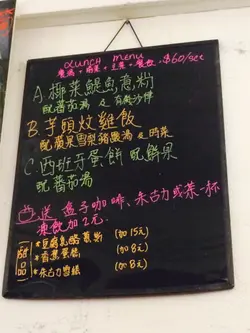 LUNCH MENU
餐湯 + 主菜 + 餐飲, $60/set
A. 椰菜鯷魚意粉
配蕃茄湯 & 有機沙律
B. 芋頭炆雞飯
配蘋果雪梨豬𦟌湯 & 時菜
C. 西班牙蛋餅 配鮮果
配蕃茄湯
送 盒子咖啡、朱古力或茶一杯
凍飲加2元.
甜品
* 豆腐芝士慕斯 (加15元)
* 香蕉蛋糕 (加8元)
* 朱古力雪糕 (加8元)